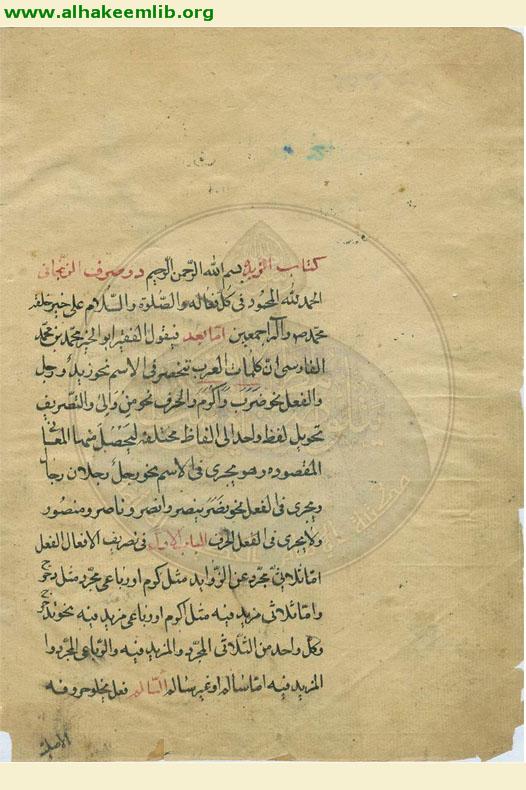 www.alhakeemlib.org
كتاب بسم الله الرحمن الرحيم در صرف الزنجاني
الحمد لله المحمود فى كل فعاله والصلوة والسلام على خير خلقه
محمد ص وآله اجمعين اما بعد فيقول الفقير ابو الخير محمد بن محمد
الفارسى ان كلمات العرب تنحصر فى الاسم نحو زيد ورجل
والفعل نحو ضرب وكرم والحرف نحو من والى والتصريف
تحويل لفظ واحد الى الفاظ مختلفة ليحصل منها المعانى
المقصوده وهو يجرى فى الاسم نحو رجل رجلان رجال
ويجرى فى الفعل نحو نصر ينصر وانصر وناصر ومنصور
ولا يجرى فى الحرف الباب الاول فى تصريف الافعال الفعل
اما ثلاثى مجرد عن الزوايد مثل كرم او رباعى مجرد مثل دحرج
واما ثلاثى مزيد فيه مثل اكرم او رباعى مزيد فيه نحو تدحرج
وكل واحد من الثلاثى المجرد والمزيد فيه والرباعى المجرد و
المزيد فيه اما سالم او غير سالم السالم فعل يخلو حروفه
الاصلية